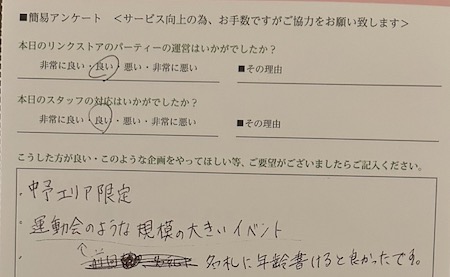 ■簡易アンケート ＜サービス向上の為、お手数ですがご協力をお願い致します＞
本日のリンクストアのパーティーの運営はいかがでしたか？
非常に良い・良い・悪い・非常に悪い ■その理由
本日のスタッフの対応はいかがでしたか？
非常に良い・良い・悪い・非常に悪い ■その理由
こうした方が良い・このような企画をやってほしい等、ご要望がございましたらご記入ください。
・中予エリア限定
・運動会のような規模の大きいイベント
・名札に年齢書けると良かったです。